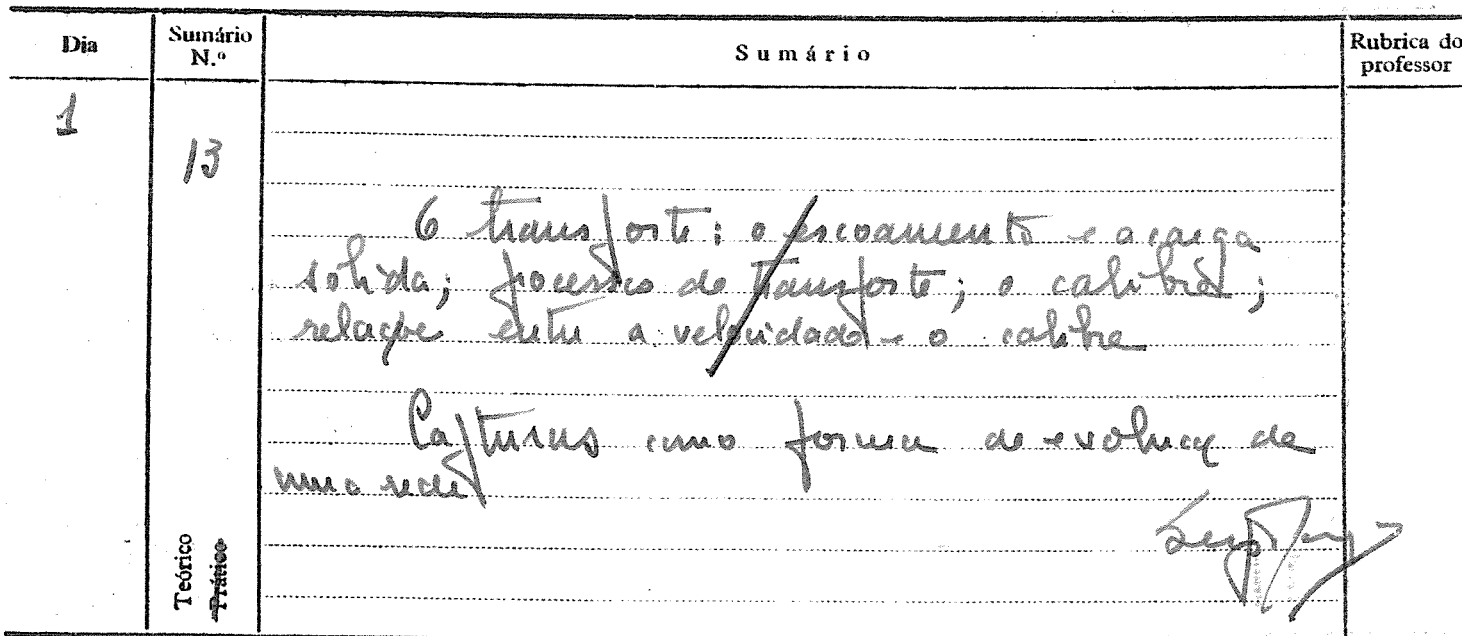 Dia Sumário N.º Sumário Rubrica do professor
1
13
O transporte; o escoamento e a carga
solida; processos de transporte; o calibre;
relação entre a velocidade e o calibre
Capturas como forma de evolução de
uma rede
Teórico
Prático